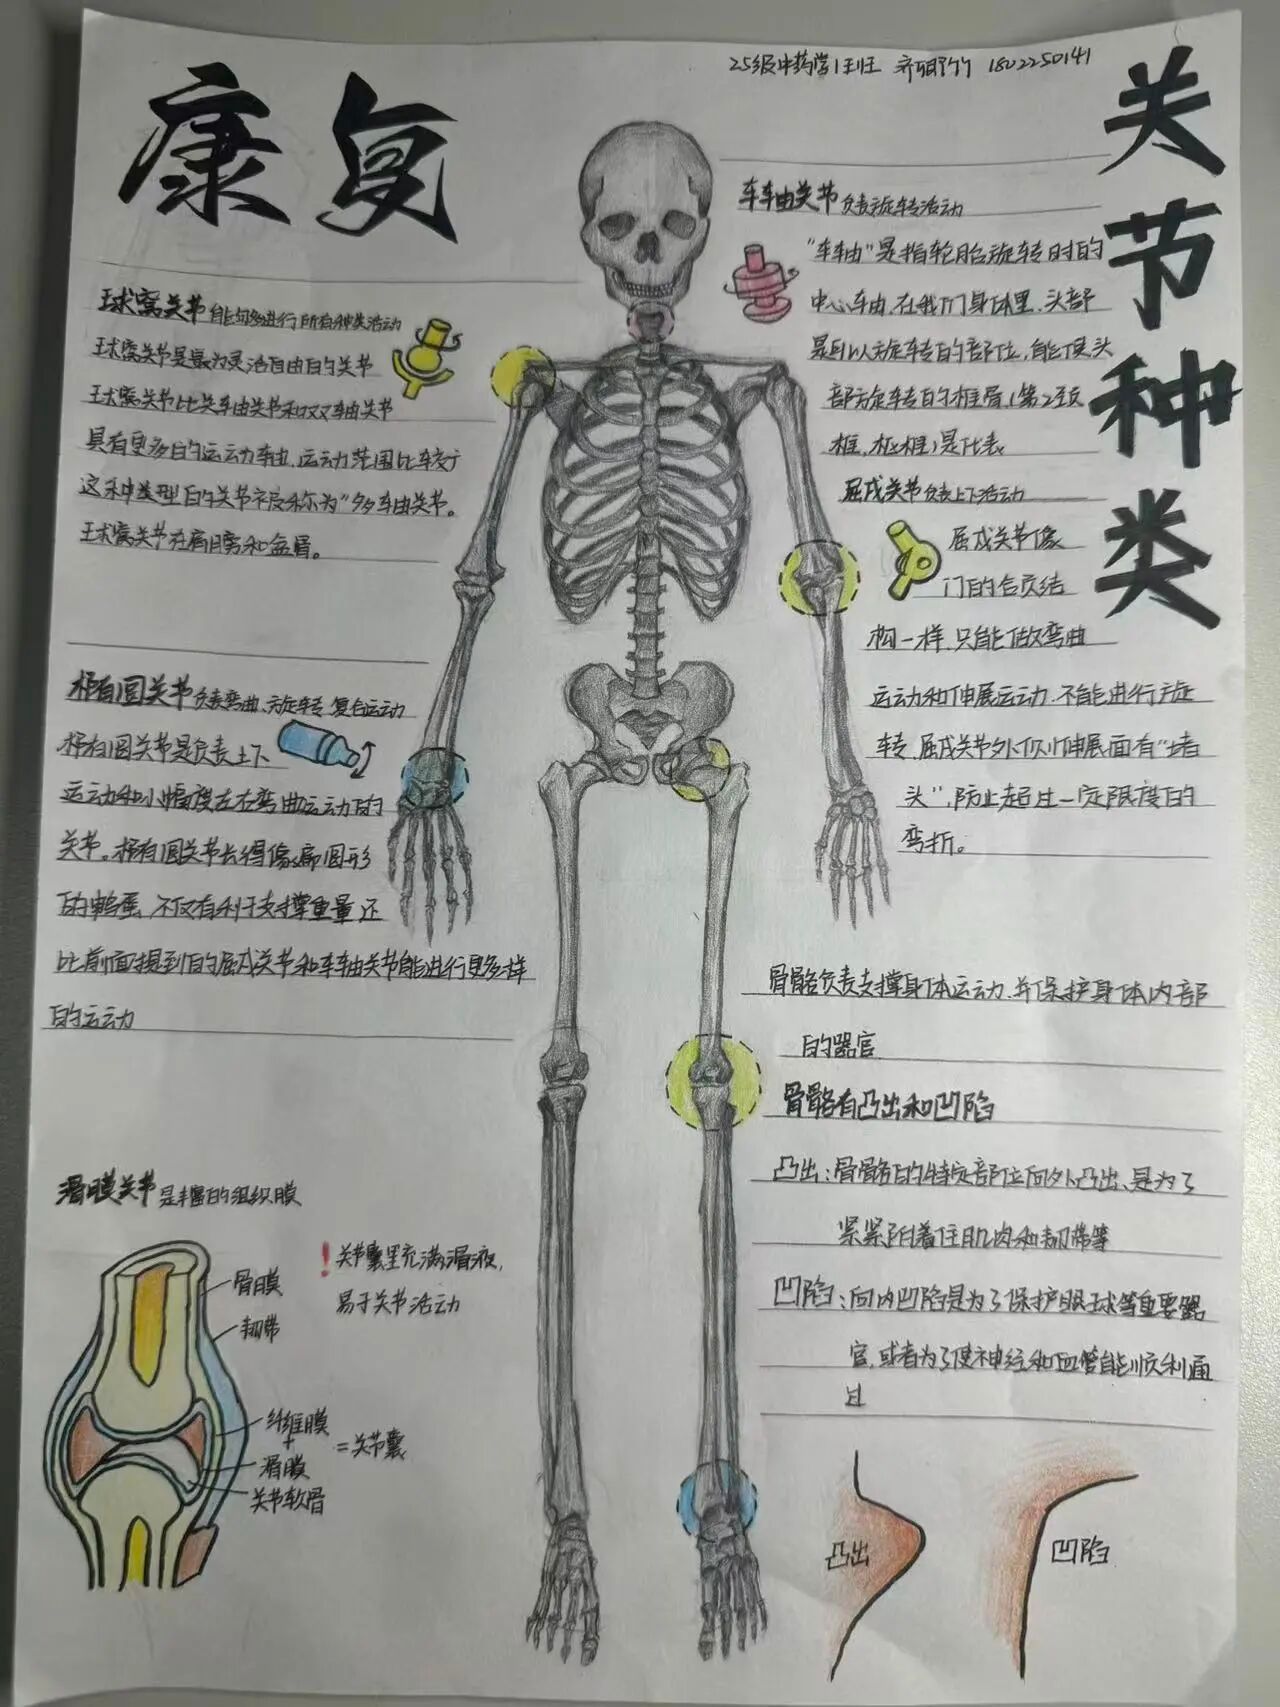 康复
25级中药学1班 1802250141
关节种类
球窝关节 能够进行所有种类活动
球窝关节是最为灵活自由的关节
球窝关节比关车由关节和双轴关节
具有更多的运动轴，运动范围比较广
这种类型的关节被称为"多轴关节。
球窝关节在肩膀和盆骨。
椭圆关节 负责弯曲、旋转复合运动
椭圆关节是负责上下
运动和小幅度左右弯曲运动的
关节。椭圆关节长得像扁圆形
的鸭蛋，不仅有利于支撑重量还
比前面提到的屈戌关节和车轴关节能进行更多样
的运动
滑膜关节 是丰富的组织膜
骨膜
韧带
纤维膜
+
滑膜
=关节囊
关节软骨
！关节囊里充满滑液，
易于关节活动
车轴关节 负责旋转活动
"车轴"是指轮胎旋转时的
中心车由，在我们身体里，头部
是可以旋转的部位，能使头
部旋转的椎骨（第2颈
椎，枢椎）是代表
屈戌关节 负责上下活动
屈戌关节像
门的合页结
构一样，只能做弯曲
运动和伸展运动，不能进行旋
转，屈戌关节外侧伸展面有"堵
头"，防止超过一定限度的
弯折。
骨骼负责支撑身体运动，并保护身体内部
的器官
骨骼有凸出和凹陷
凸出：骨骼的特定部位向外凸出，是为了
紧紧附着住肌肉和韧带等
凹陷：向内凹陷是为了保护眼球等重要器
官，或者为了使神经和血管能顺利通
过
凸出
凹陷